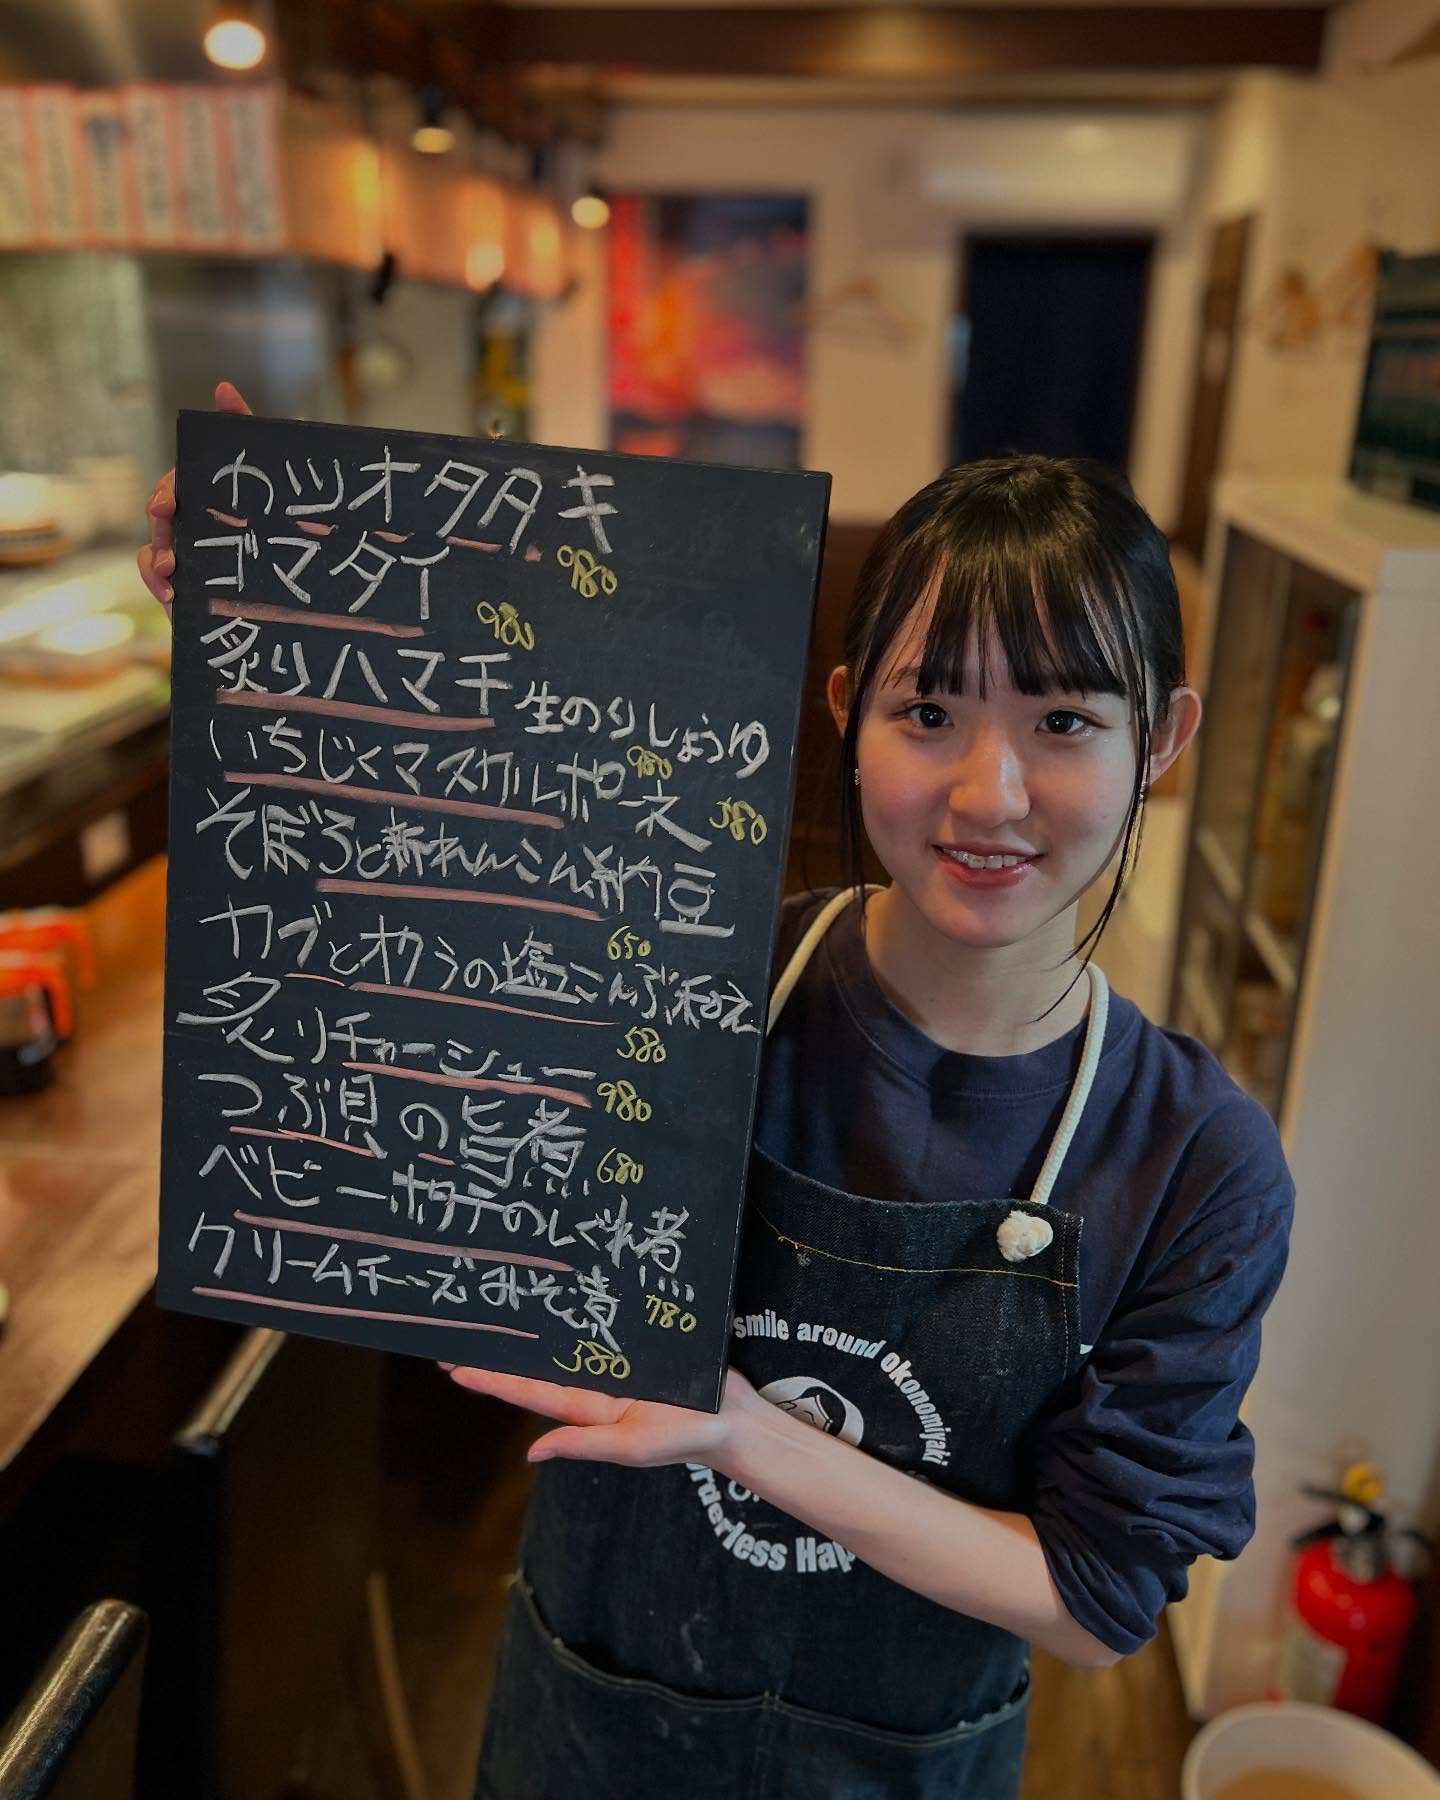 カツオタタキ
980
ゴマタイ
980
炙りハマチ 生のりしょうゆ
980
いちじくマスカルポーネ
580
そぼろと新れんこん納豆
650
カブとオクラの塩こんぶ和え
580
炙りチャーシュー
980
つぶ貝の旨煮
680
ベビーホタテのしぐれ煮
780
クリームチーズみそ漬
580
smile around okonomiyaki